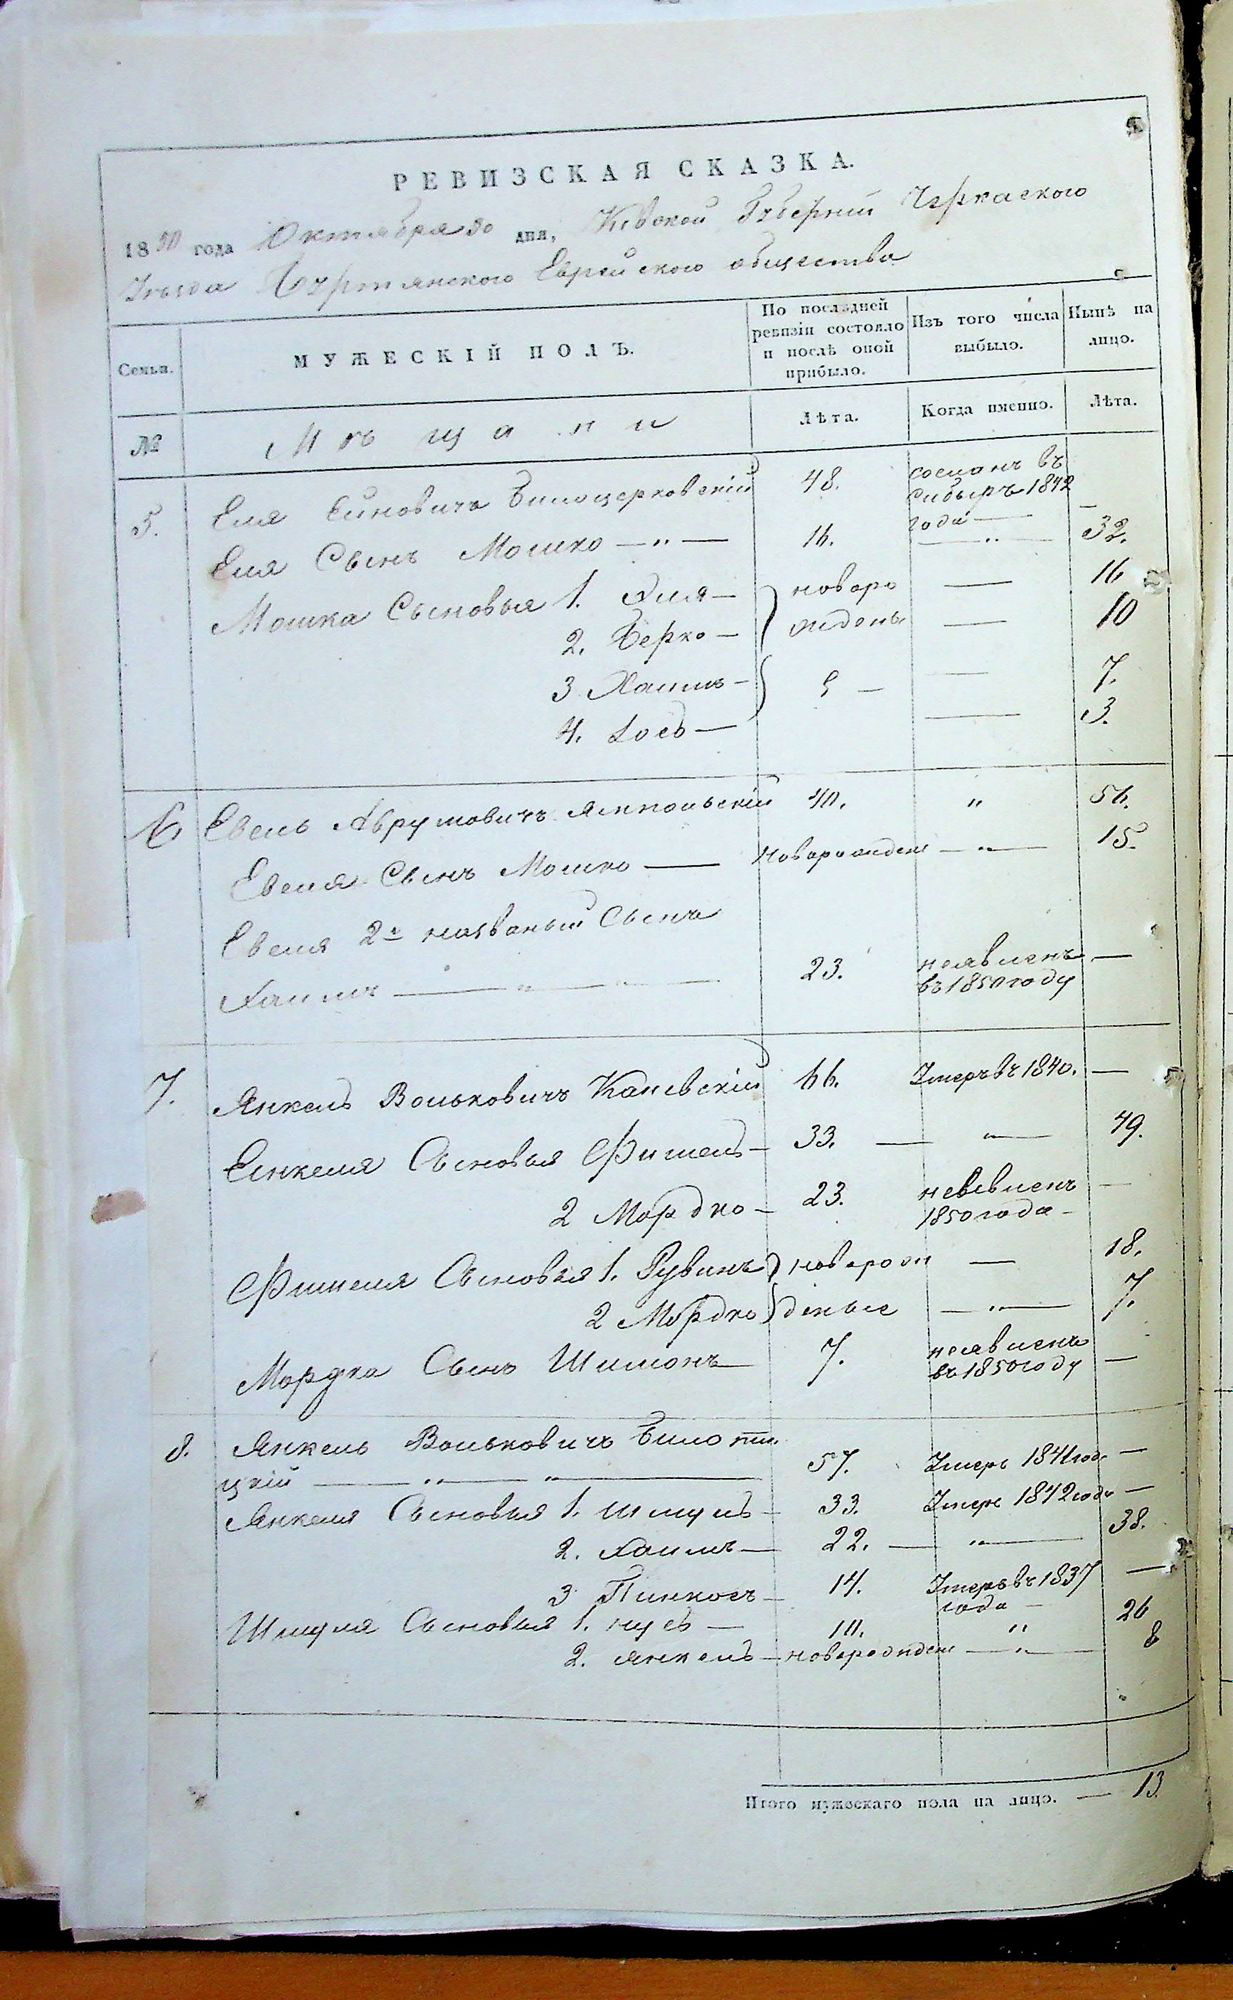 РЕВИЗСКАЯ СКАЗКА.
1850 года Октября 30 дня, Кіевской Губерніи Черкаского
Уезда Еврейского общества
Семьи. МУЖЕСКІЙ ПОЛЪ. По последней ревизіи состояло и послѣ оной прибыло. Изъ того числа выбыло. Нынѣ на лицо.
№ Мѣщани Лѣта. Когда именно. Лѣта.
5. Еля Билоцерковскій 48. сосланъ въ Сибыръ 1842 года —
Еля Сынъ Мошко — " — 16. — " — 32.
Мошка Сыновья 1. Эля — новоро — 16
2. Берко — ждены — 10
3 Хаимъ — — 7.
4. Іосъ — — 3.
6 Евель Аврумовичъ Ямпольскій 40. " 56.
Евеля Сынъ Мошко — Новорожден — " — 15.
Евеля 2й названый Сынъ
Хаимъ — " — " — 23. неявленъ въ 1850 году —
7. Янкель Вольковичъ Каневскій 66. Умеръ въ 1840. —
Еянкеля Сыновья Фишель — 33. — " — 49.
2 Мордко — 23. 1850 года — —
Фишеля Сыновья 1. Рувинъ новорож — 18.
2 Мордко деные — " — 7.
Мордка Сынъ Шимонъ — 7. неявленъ въ 1850 году —
8. Янкель Вольковичъ
цкій — " — " — 57. Умеръ 1841 года —
Янкеля Сыновья 1. Шмуль — 33. Умеръ 1842 года —
2. Хаимъ — 22. — " — 38.
3 Пинкосъ — 14. Умеръ въ 1837 года — —
Шмуля Сыновья 1. Нусъ — 10. " 26
2. Янкель — новорожден — " — 8
Итого мужескаго пола на лицо. — 13